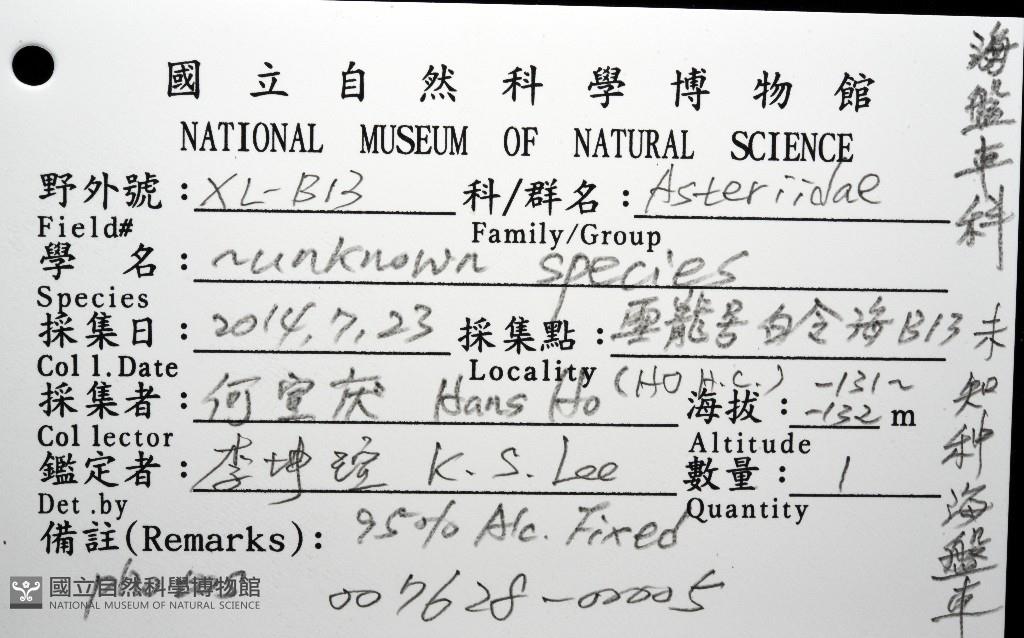 國立自然科學博物館
NATIONAL MUSEUM OF NATURAL SCIENCE
野外號：XL-B13 科/群名：Asteriidae
Field# Family/Group
學 名：~unknown species
Species
採集日：2014,7,23 採集點：雪龍号白令海B13
Coll.Date Locality
採集者：何宣庆 Hans Ho (HO H.C.) 海拔：-131~-132 m
Collector Altitude
鑑定者：李坤瑄 K. S. Lee 數量：1
Det.by Quantity
備註(Remarks)：95% Alc. Fixed
photo
007628-00005
海盤车科 未知种海盤车
國立自然科學博物館
NATIONAL MUSEUM OF NATURAL SCIENCE